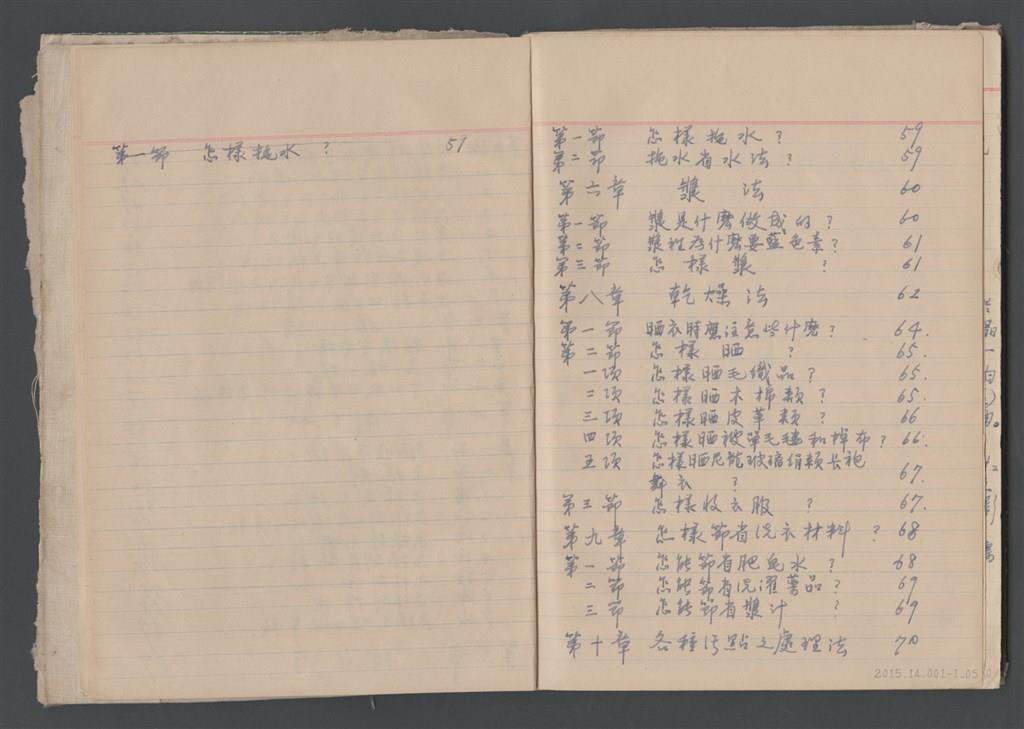 第一節 怎樣拖水 ? 59
第一節 怎樣拖水 ? 59
第二節 拖水省水法 ? 59
第六章 漿法 60
第一節 漿是什麼做成的 ? 60
第二節 漿裡為什麼要藍色素 ? 61
第三節 怎樣漿 ? 61
第八章 乾燥法 62
第一節 晒衣時應注意些什麼 ? 64.
第二節 怎樣晒 ? 65.
一項 怎樣晒毛織品 ? 65.
二項 怎樣晒木棉類 ? 65.
三項 怎樣晒皮革類 ? 66
四項 怎樣晒被單毛毯和桌布 ? 66.
五項 怎樣晒尼龍玻璃絹類長袍
舞衣 ? 67.
第三節 怎樣收衣服 ? 67.
第九章 怎樣節省洗衣材料 ? 68
第一節 怎能節省肥皂水 ? 68
二節 怎能節省洗濯藥品 ? 69
三節 怎能節省漿汁 ? 69
第十章 各種污點之處理法 70
2015.14.001-1.05